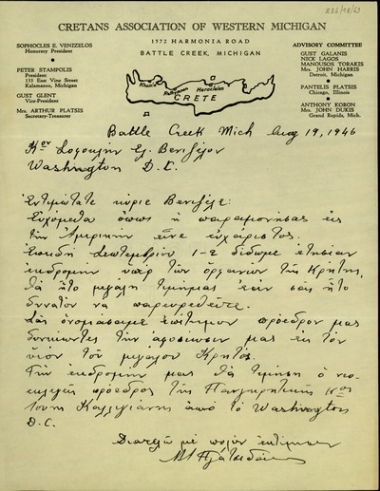 CRETANS ASSOCIATION OF WESTERN MICHIGAN
1772 HARMONIA ROAD
BATTLE CREEK, MICHIGAN
SOPHOCLES E. VENIZELOS
Honorary President
PETER STAMPOLIS
President
Kalamazoo, Michigan
GUST GLENT
Vice-President
Mrs. ARTHUR PLATSIS
Secretary-Treasurer
ADVISORY COMMITTEE
GUST GALANIS
NICK LAGOS
MANOUSOS TORAKIS
Mrs. JOHN HARRIS
Detroit, Michigan
PANTELIS PLATSIS
Chicago, Illinois
ANTHONY KORON
Mrs. JOHN DUKIS
Grand Rapids, Mich.
CRETE
Battle Creek Mich Aug 19, 1946
Κον Σοφοκλήν Ελ. Βενιζέλον
Washington D.C.
Εντιμώτατε κύριε Βενιζέλε:
Ευχόμεθα όπως η παραμονή σας εις
την Αμερικήν είνε ευχάριστος.
Επειδή Σεπτεμβρίου 1-2 δίδωμε ετησίαν
εκδρομήν υπέρ των ορφανών της Κρήτης,
θα ήτο μεγάλη τιμή μας εάν σας ήτο
δυνατόν να παρευρεθείτε.
Σας ονομάσαμε επίτιμον πρόεδρον μας
δεικνύοντες την αφοσίωσιν μας εις τον
υιόν του μεγάλου Κρητός.
Την εκδρομήν μας θα τιμήση ο νεο
εκλεγείς πρόεδρος της Παγκρητικής Κος
Καλλιγιάννης από το Washington
D.C.
Διατελώ με πολλήν εκτίμησιν